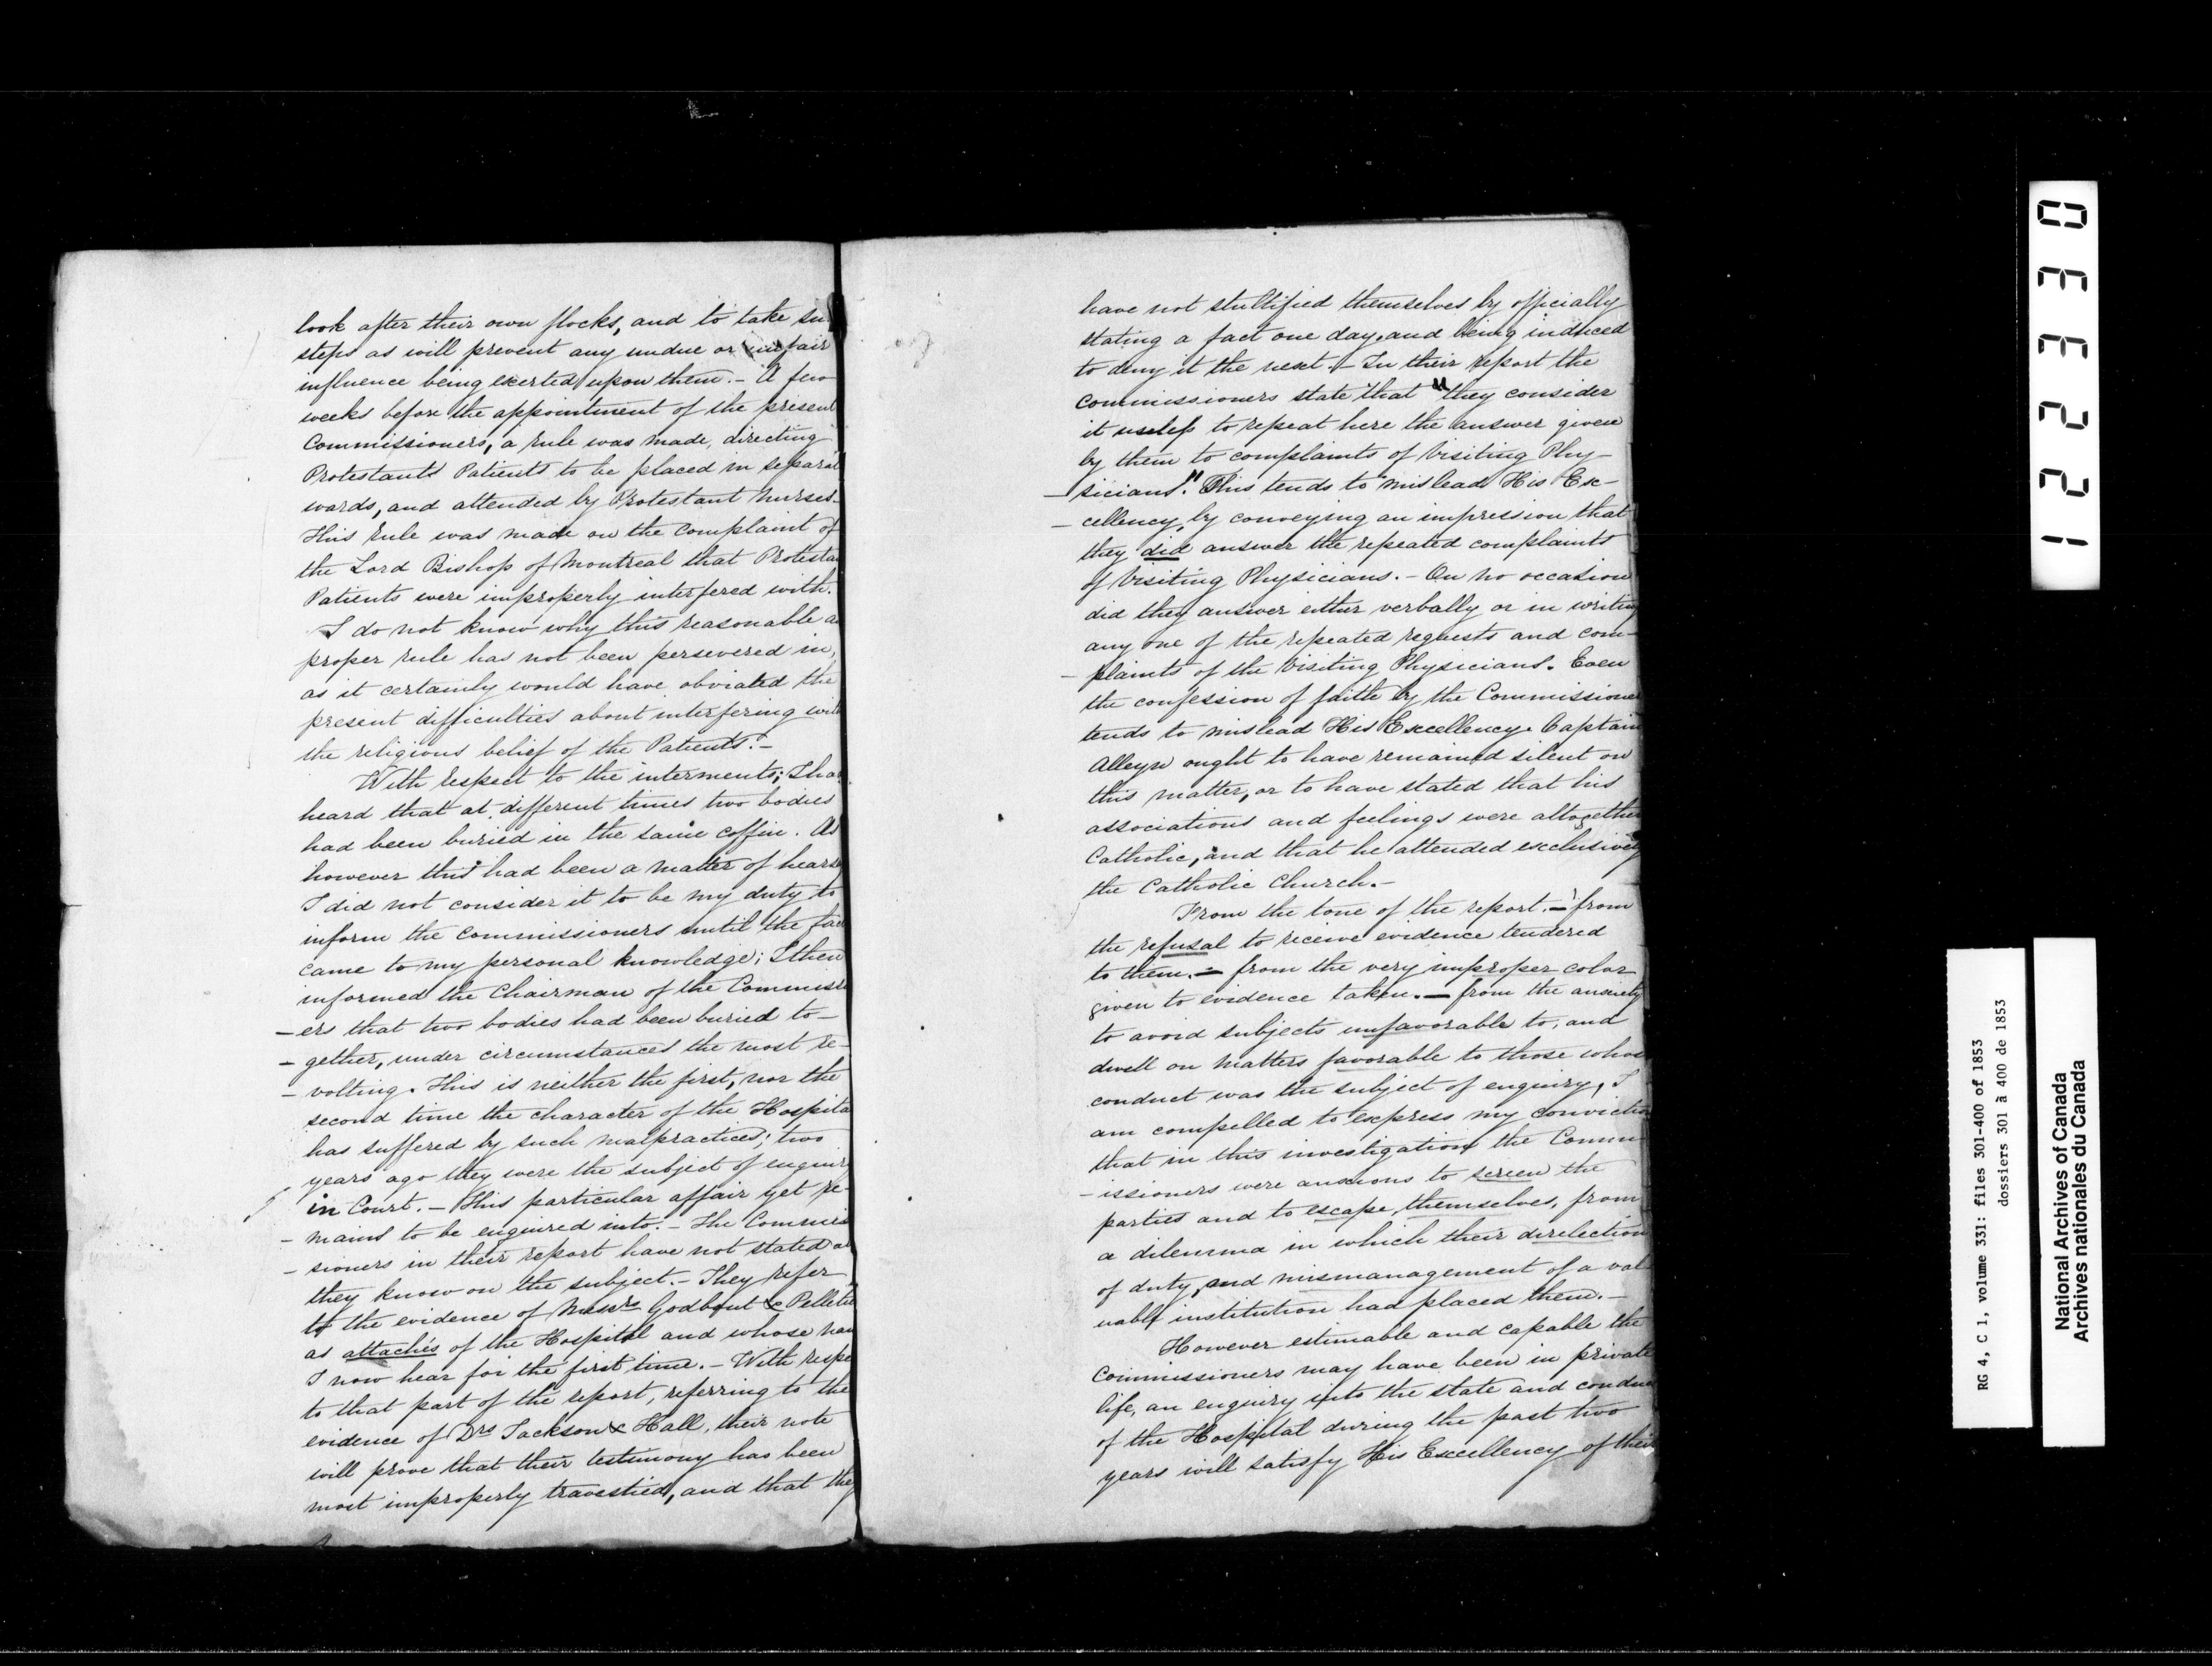 look after their own flocks, and to take su
steps as will prevent any undue or unfair
influence being exerted upon them. - A few
weeks before the appointment of the present
Commissioners, a rule was made, directing
Protestants Patients to be placed in separat
wards, and attended by Protestant Nurses.
This rule was made on the complaint of
the Lord Bishop of Montreal that Protesta
Patients were improperly interfered with.
I do not know why this reasonable a
proper rule has not been persevered in,
as it certainly would have obviated the
present difficulties about interfering with
the religious belief of the Patients. -
With respect to the interments; I ha
heard that at different times two bodies
had been buried in the same coffin. As
however this had been a matter of hearsay
I did not consider it to be my duty to
inform the Commissioners until the fac
came to my personal knowledge; I then
informed the Chairman of the Commissi
-ers that two bodies had been buried to-
-gether, under circumstances the most re-
-volting. This is neither the first, nor the
second time the character of the Hospita
has suffered by such malpractices; two
years ago they were the subject of enquir
in Court. - This particular affair yet re-
-mains to be enquired into. - The Commis
-sioners in their report have not stated al
they know on the subject. - They refer
to the evidence of Messrs Godbout & Pelleti
as attachés of the Hospital and whose nam
I now hear for the first time. - With respe
to that part of the report, referring to the
evidence of Drs Jackson & Hall, their note
will prove that their testimony has been
most improperly travestied, and that they
have not stultified themselves by officially
stating a fact one day, and being induced
to deny it the next. - In their report the
Commissioners state that "they consider
it useless to repeat here the answer given
by them to complaints of Visiting Phy-
-sicians." This tends to mislead His Ex-
-cellency, by conveying an impression that
they did answer the repeated complaints
of Visiting Physicians. - On no occasion
did they answer either verbally or in writing
any one of the repeated requests and com-
-plaints of the Visiting Physicians. Even
the confession of faith by the Commissioner
tends to mislead His Excellency. Captain
Alleyn ought to have remained silent on
this matter, or to have stated that his
associations and feelings were altogether
Catholic, and that he attended exclusively
the Catholic Church. -
From the tone of the report. - from
the refusal to receive evidence tendered
to them. - from the very improper color
given to evidence taken. - from the anxiety
to avoid subjects unfavorable to, and
dwell on matters favorable to those whos
conduct was the subject of enquiry, I
am compelled to express my conviction
that in this investigation the Comm
-issioners were anxious to screen the
parties and to escape, themselves, from
a dilemma in which their direlection
of duty, and mismanagement of a val
uable institution had placed them. -
However estimable and capable the
Commissioners may have been in private
life, an enquiry into the state and conduc
of the Hospital during the past two
years will satisfy His Excellency of their
122330
RG 4, C 1, volume 331: files 301-400 of 1853
dossiers 301 à 400 de 1853
National Archives of Canada
Archives nationales du Canada